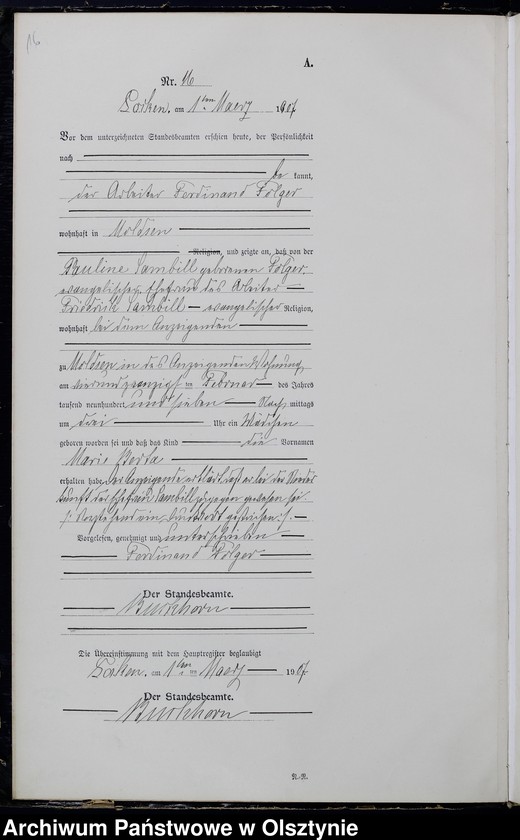 16
A.
Nr. 16
Locken, am 1ten Maerz 1907.
Vor dem unterzeichneten Standesbeamten erschien heute, der Persönlichkeit
nach
be kannt,
der Arbeiter Ferdinand Folger
wohnhaft in Moldsen
Religion, und zeigte an, daß von der
Pauline Sambill geborenen Folger,
evangelischer Ehefrau des Arbeiter
Friedrich Sambill - evangelischer Religion,
wohnhaft bei dem Anzeigenden
zu Moldsen in des Anzeigenden Wohnung,
am vierundzwanzigsten Februar des Jahres
tausend neunhundert und sieben Nach mittags
um drei Uhr ein Mädchen
geboren worden sei und daß das Kind die Vornamen
Marie Berta
erhalten habe. Der Anzeigende erklärt daß er bei der Nieder
kunft der Ehefrau Sambill zugegen gewesen sei
Vorstehend ein Druckwort gestrichen
Vorgelesen, genehmigt und unterschrieben
Ferdinand Folger
Der Standesbeamte.
Burkhorn
Die Übereinstimmung mit dem Hauptregister beglaubigt
Locken, am 1ten Maerz 1907
Der Standesbeamte.
Burkhorn
Archiwum Państwowe w Olsztynie